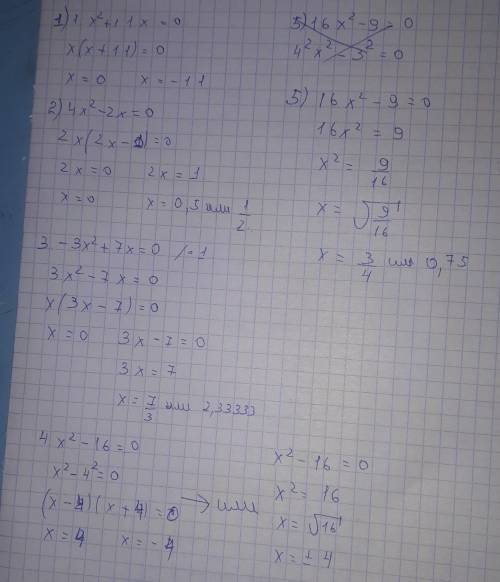 1) x² + 11x = 0
x(x + 11) = 0
x = 0 x = -11
2) 4x² - 2x = 0
2x(2x - 1) = 0
2x = 0 2x = 1
x = 0 x = 0,5 или 1/2
3. -3x² + 7x = 0 /·-1
3x² - 7x = 0
x(3x - 7) = 0
x = 0 3x - 7 = 0
3x = 7
x = 7/3 или 2,33333
4 x² - 16 = 0
x² - 4² = 0
(x - 4)(x + 4) = 0 → или
x = 4 x = -4
x² - 16 = 0
x² = 16
x = √16
x = ± 4
5) 16x² - 9 = 0
4²x² - 3² = 0
5) 16x² - 9 = 0
16x² = 9
x² = 9/16
x = √9/16
x = 3/4 или 0,75